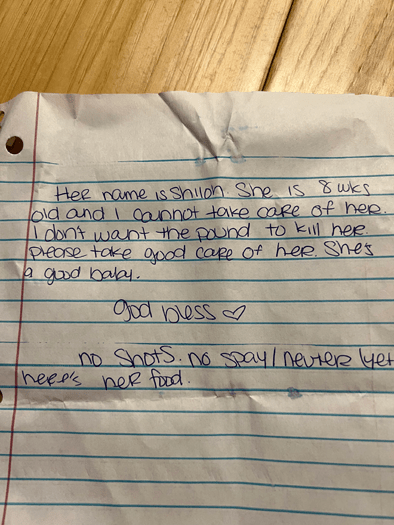 Her name is Shiloh. She is 8 wks
old and I cannot take care of her.
I dont want the pound to kill her.
please take good care of her. She's
a good baby.
god bless ♡
no shots. no spay/neuter (yet
here's her food.